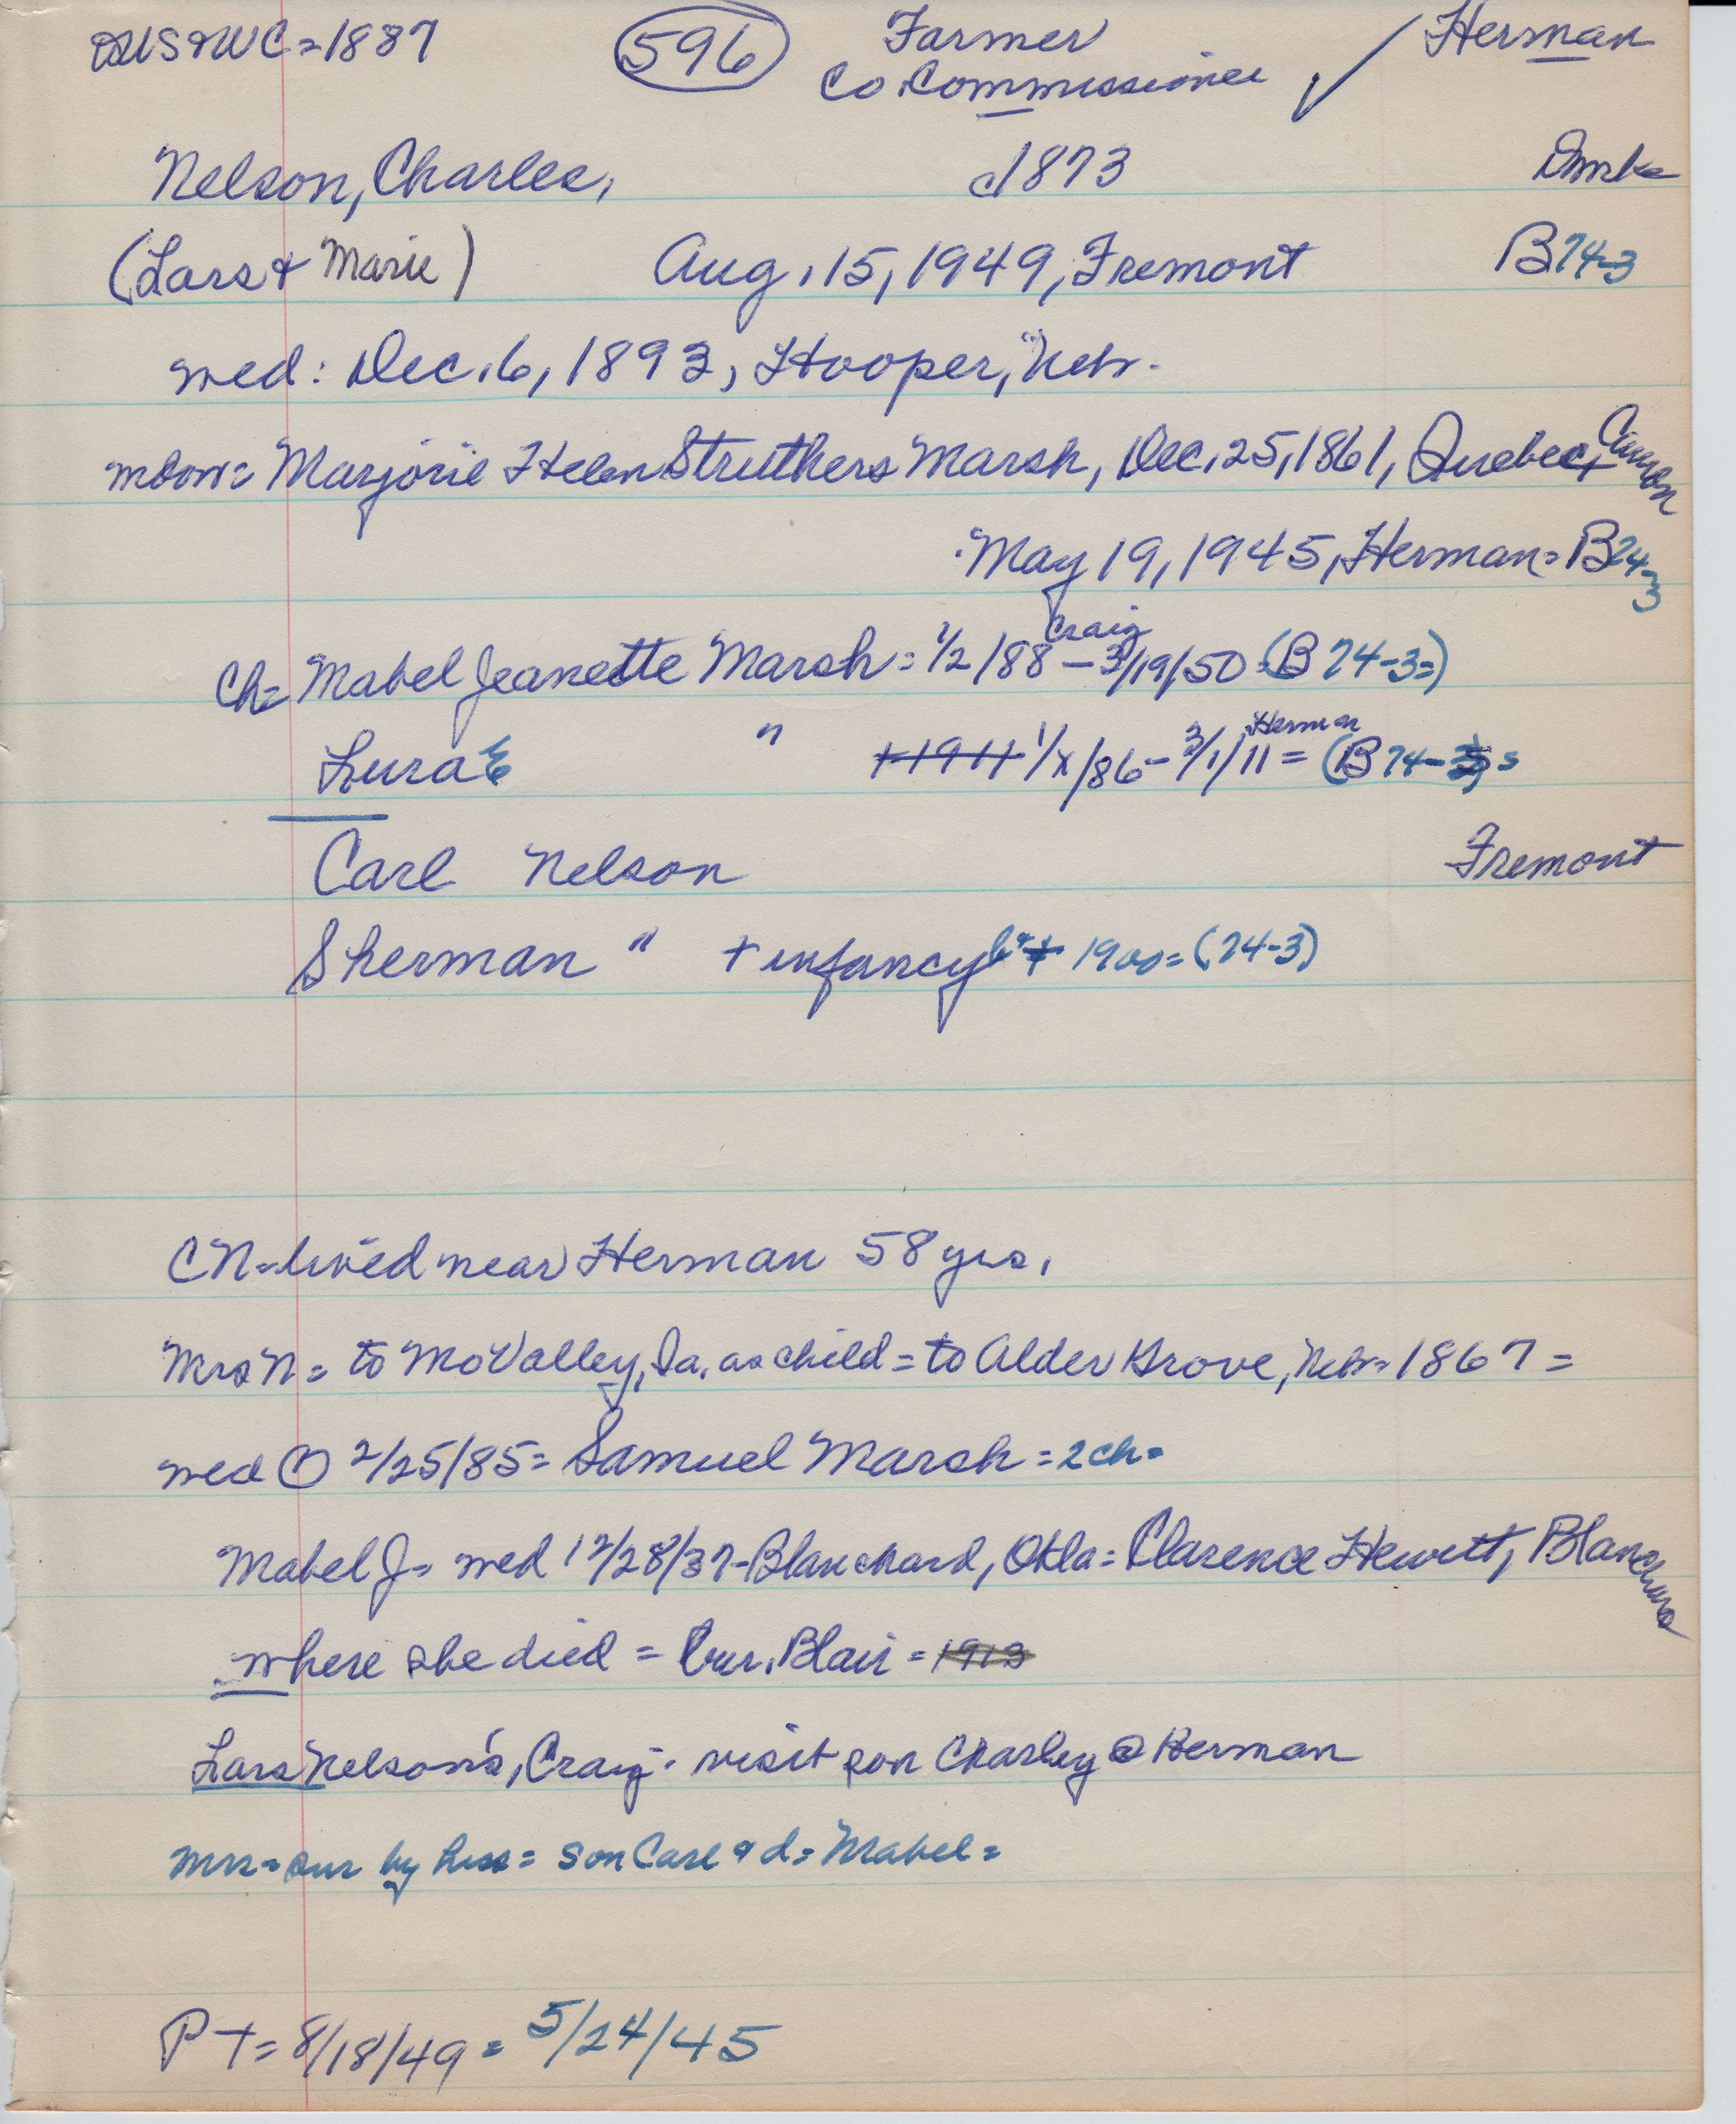 US&WC=1887 (596) Farmer ✓ Herman
Co Commissioner
Nelson, Charles, c1873 Dmk
(Lars & Marie) Aug. 15, 1949, Fremont B74-3
med: Dec. 6, 1893, Hooper, Neb.
Marjorie Helen Struthers Marsh, Dec. 25, 1861, Quebec,
May 19, 1945, Herman= B74-3
Craig
Ch= Mabel Jeanette Marsh= 1/2/88 - 3/19/50 (B 74-3=)
Herman
Lura E " +1911 1/x/86- 3/1/11= (B 74-
Carl Nelson Fremont
Sherman " + infancy b&+ 1900=(74-3)
CN=lived near Herman 58 yrs.
Mrs N= to Mo Valley, Ia. as child= to Alder Grove, Neb= 1867=
med ① 2/25/85= Samuel Marsh= 2 ch=
Mabel J= med 12/28/37-Blanchard, Okla= Clarence Hewett, Blanchard
where she died = bur. Blair= 1913
Lars Nelson's, Craig- visit son Charley @ Herman
Mrs= sur by hus= son Carl & d= Mabel=
PT= 8/18/49= 5/24/45